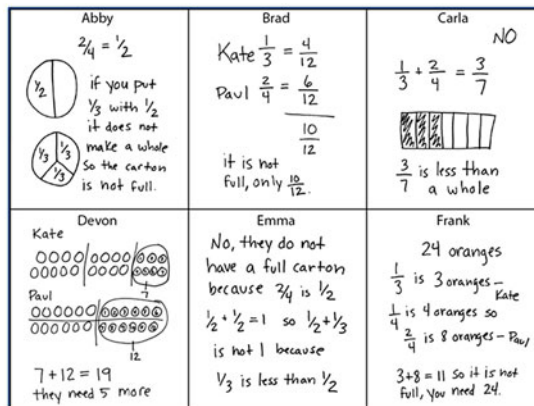 Abby
2/4 = 1/2
1/2
if you put
1/3 with 1/2
it does not
make a whole
so the carton
is not full.
1/3 1/3
1/3
Brad
Kate 1/3 = 4/12
Paul 2/4 = 6/12
10/12
it is not
full, only 10/12.
Carla
NO
1/3 + 2/4 = 3/7
3/7 is less than
a whole
Devon
Kate
7
Paul
12
7 + 12 = 19
they need 5 more
Emma
No, they do not
have a full carton
because 2/4 is 1/2
1/2 + 1/2 = 1 so 1/2 + 1/3
is not 1 because
1/3 is less than 1/2
Frank
24 oranges
1/3 is 3 oranges – Kate
1/4 is 4 oranges so
2/4 is 8 oranges – Paul
3+8 = 11 so it is not
full, you need 24.